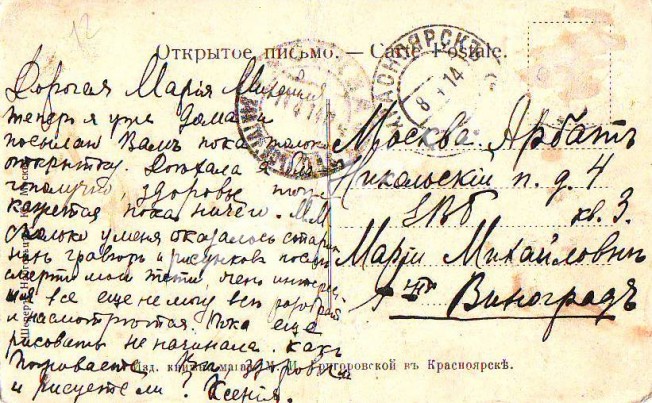 12
Открытое письмо. — Carte Postale.
КРАСНОЯРСКЪ
8 14
Дорогая Марія Михайл.
теперь я уже дома и
посылаю Вамъ пока только
открытку. Доехала я бла
гополучно, здоровье тоже
кажется пока ничего. М.М.
сколько у меня оказалось старин
нихъ гравюръ и рисунковъ после
смерти моей тети, очень интерес
но все еще не могу всё разобрать
и насмотреться. Пока еще
рисовать не начинала. Какъ
поживаете Вы здоровы
и рисуете ли? Ксенія.
Москва Арбатъ
Никольскій п. д. 4
кв. 3.
Маріи Михайловнѣ
Виноградъ
Изд. книжн. магаз. М. Григоровской въ Красноярскѣ.